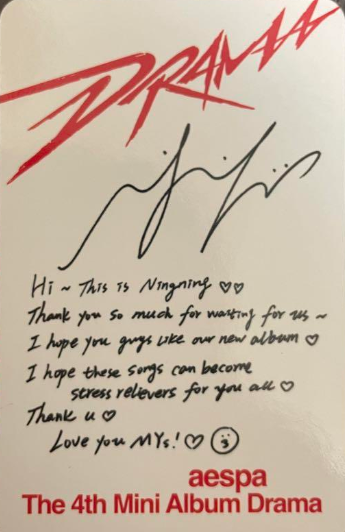 DRAMA
Hi ~ This is Ningning ♡♡
Thank you so much for waiting for us ~
I hope you guys like our new album ♡
I hope these songs can become
stress relievers for you all ♡
Thank u ♡
Love you MYs! ♡
aespa
The 4th Mini Album Drama